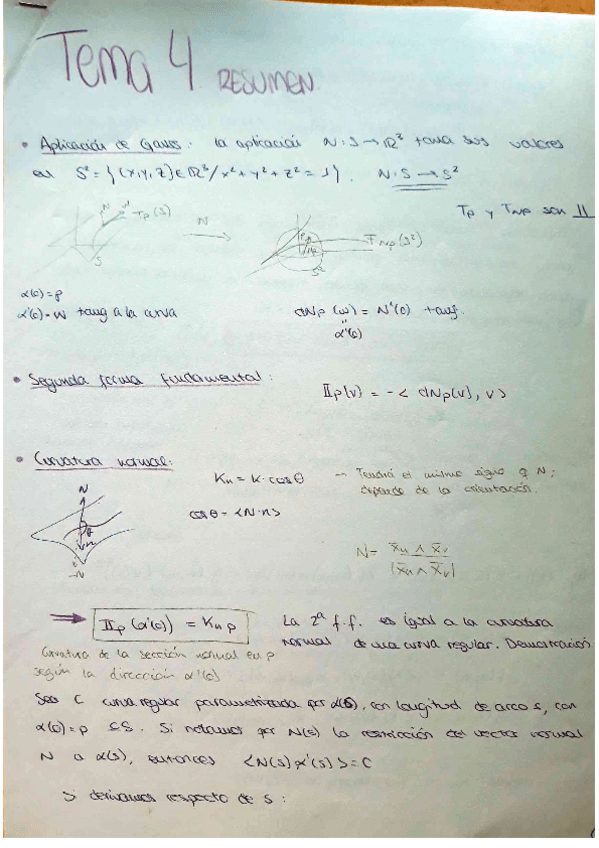 Tema 4 RESUMEN.
• Aplicación de Gauss: la aplicación N:S→ℝ³ toma sus valores
en S²={(x,y,z)∈ℝ³/x²+y²+z²=1}. N:S→S²
Tp y TNp son ||
N W Tp(S) N TNp(S²)
S S²
α(0)=p
α'(0)=W tang a la curva dNp(w) = N'(0) tang.
α'(0)
• Segunda forma fundamental: IIp(v) = -< dNp(v), v>
• Curvatura normal:
Kn = K·cosθ — Tendrá el mismo signo q N;
depende de la orientación.
N
cosθ = <N·n>
θ
n
-N
N = x̄u ∧ x̄v / |x̄u ∧ x̄v|
⇒ IIp(α'(0)) = Kn p La 2ª f.f. es igual a la curvatura
normal de una curva regular. Demostración
Curvatura de la sección normal en p
según la dirección α'(0)
Sea C curva regular parametrizada por α(s), con longitud de arco s, con
α(0)=p ∈S. Si notamos por N(s) la restricción del vector normal
N a α(s), entonces <N(s),α'(s)>=0
Si derivamos respecto de s: